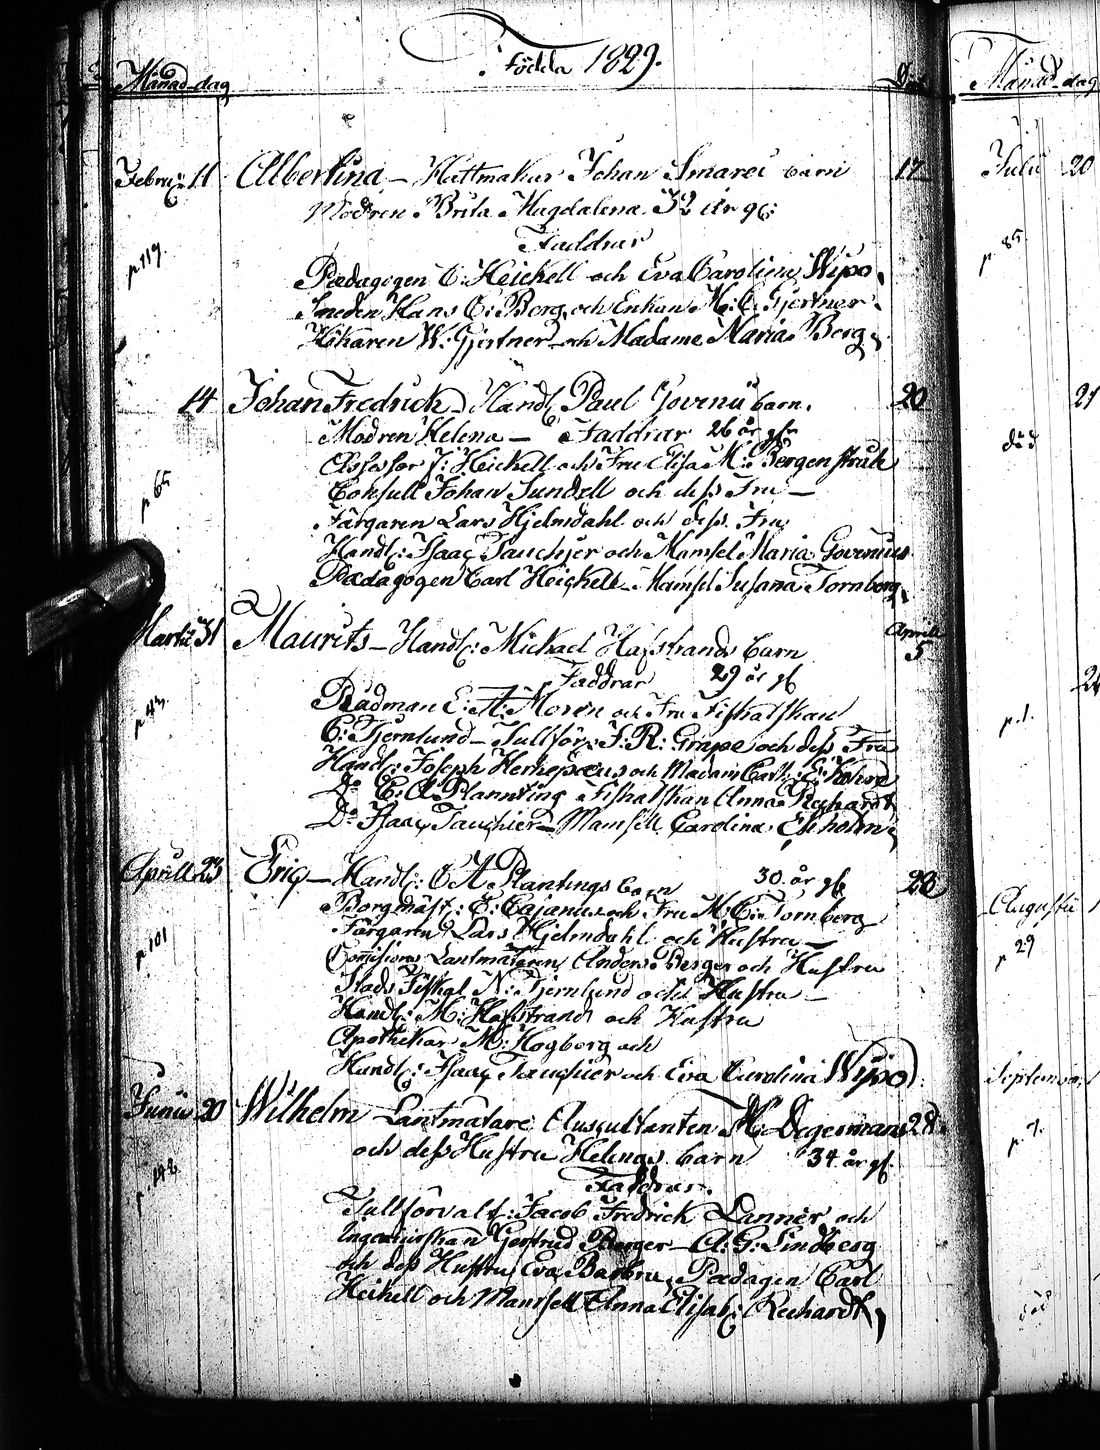 Födda 1829.
Månad-dag
Döpt
Februarii 11 Albertina – Hattmakar Johan Smarei barn 17
Modren Brita Magdalena 32 år gl:
Faddrar
p 119.
Pædagogen C: Heickell och Eva Carolina Wipo,
Smeden Hans E: Berg, och Enkan M: C: Gjertner.
Hökaren W: Gjertner och Madame Maria Berg,
14 Johan Fredrick – Handl: Paul Govenii barn. 20
Modren Helena – Faddrar 26 år gl.
p 65
Assessor J: Heickell och Fru Elisa M: Bergenstråle
Consull Johan Sundell och dess Fru –
Färgaren Lars Hjelmdahl och dess Fru
Handl: Isaac Tauchjer och Mamsel Maria Govenius
Pædagogen Carl Heickell – Mamsel Susana Tornberg,
Martii 31 Maurits – Handl: Michael Hafstrands barn Aprill 5
Faddrar 29 år gl
p 43.
Rådman E: A: Morén och Fru Fiskalskan
C: Tjernlund – Tullförv: J: R: Gripe och dess Fru
Handl: Joseph Herkepæus och Madam Cath: E:
Do C: A Plannting Fiskalskan Anna Richardt
Do Isaac Tauchier – Mamsell Carolina Ekholm,
Aprill 23 Eric – Handl: C A Plantings barn 30 år gl 28
p 101
Borgmäst: E: Cajanus och Fru M: C: Tornberg
Färgaren Lars Hjelmdahl och Hustru –
Comisions Lantmätaren Anders Berger och Hustru
Stads Fiskal N: Tjernlund och Hustru –
Handl: M: Hafstrand och Hustru
Apothekar M: Hogberg och
Handl: Isaac Tauchier och Eva Carolina Wipo.
Junii 20 Wilhelm – Lantmätare Auscultanten M: Degermans 28.
och dess Hustru Helenas barn 34 år gl.
Faddrar.
p. 142
Tullförvalt: Jacob Fredrick Lannér och
Ingeniurskan Gertrud Berger – A: G: Lindberg
och dess Hustru Eva Barbru, Pædagen Carl
Heikell och Mamsell Anna Elisab: Richardt,
Månad-dag
Julii 20
p 85.
21
död
p. 1.
Augustii
p 29
September
p. 7.
död